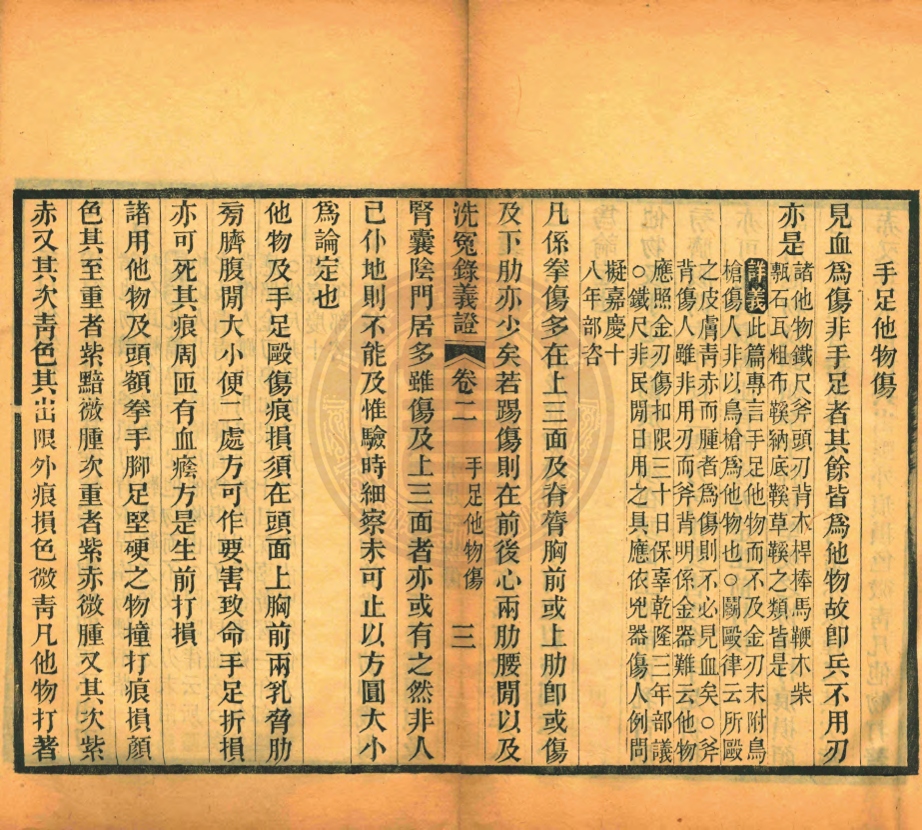 手足他物傷
見血爲傷非手足者其餘皆爲他物故卽兵不用刃
亦是
諸他物鐵尺斧頭刃背木桿棒馬鞭木柴
甎石瓦粗布鞵納底鞵草鞵之類皆是
詳義此篇專言手足他物而不及金刃末附鳥
槍傷人非以鳥槍爲他物也○鬬毆律云所毆
之皮膚靑赤而腫者爲傷則不必見血矣○斧
背傷人雖非用刃而斧背明係金器難云他物
應照金刃傷扣限三十日保辜乾隆三年部議
○鐵尺非民閒日用之具應依兇器傷人例問
擬嘉慶十
八年部咨
凡係拳傷多在上三面及脊膂胸前或上肋卽或傷
及下肋亦少矣若踢傷則在前後心兩肋腰閒以及
洗冤錄義證 卷二 手足他物傷 三
腎囊陰門居多雖傷及上三面者亦或有之然非人
已仆地則不能及惟驗時細察未可止以方圓大小
爲論定也
他物及手足毆傷痕損須在頭面上胸前兩乳脅肋
㫄臍腹閒大小便二處方可作要害致命手足折損
亦可死其痕周匝有血癊方是生前打損
諸用他物及頭額拳手腳足堅硬之物撞打痕損顏
色其至重者紫黯微腫次重者紫赤微腫又其次紫
赤又其次靑色其出限外痕損色微靑凡他物打著